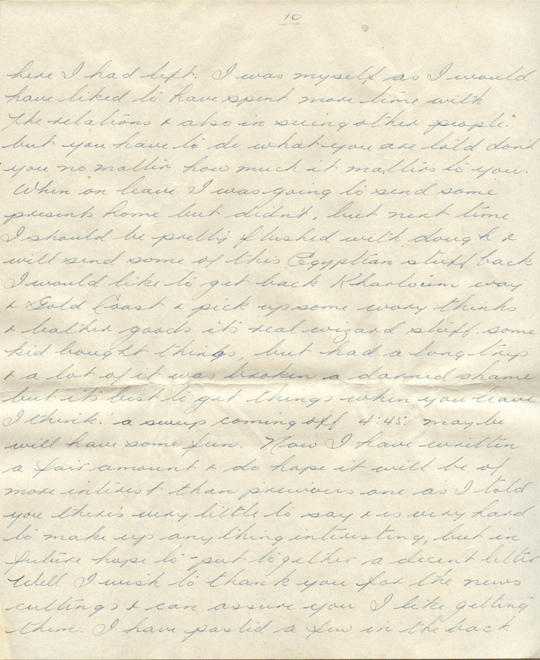 10
here I had left. I was myself as I would
have liked to have spent more time with
the relations & also in seeing other people.
but you have to do what you are told don't
you no matter how much it matters to you.
When on leave I was going to send some
presents home but didn't, but next time
I should be pretty flushed with dough &
will send some of this Egyptian stuff back
I would like to get back Khartoum way
& Gold Coast & pick up some ivory thinks
& leather goods its real wizard stuff. some
kid bought things, but had a long trip
& a lot of it was broken a darned shame
but its best to get things when you leave
I think. a sweep coming off 4:45 may be
will have some fun. Now I have written
a fair amount & do hope it will be of
more interest than previous one as I told
you there's very little to say & is very hard
to make up any thing interesting, but in
future hope to put together a decent letter
Well I wish to thank you for the news
cuttings & can assure you I like getting
them. I have pasted a few in the back